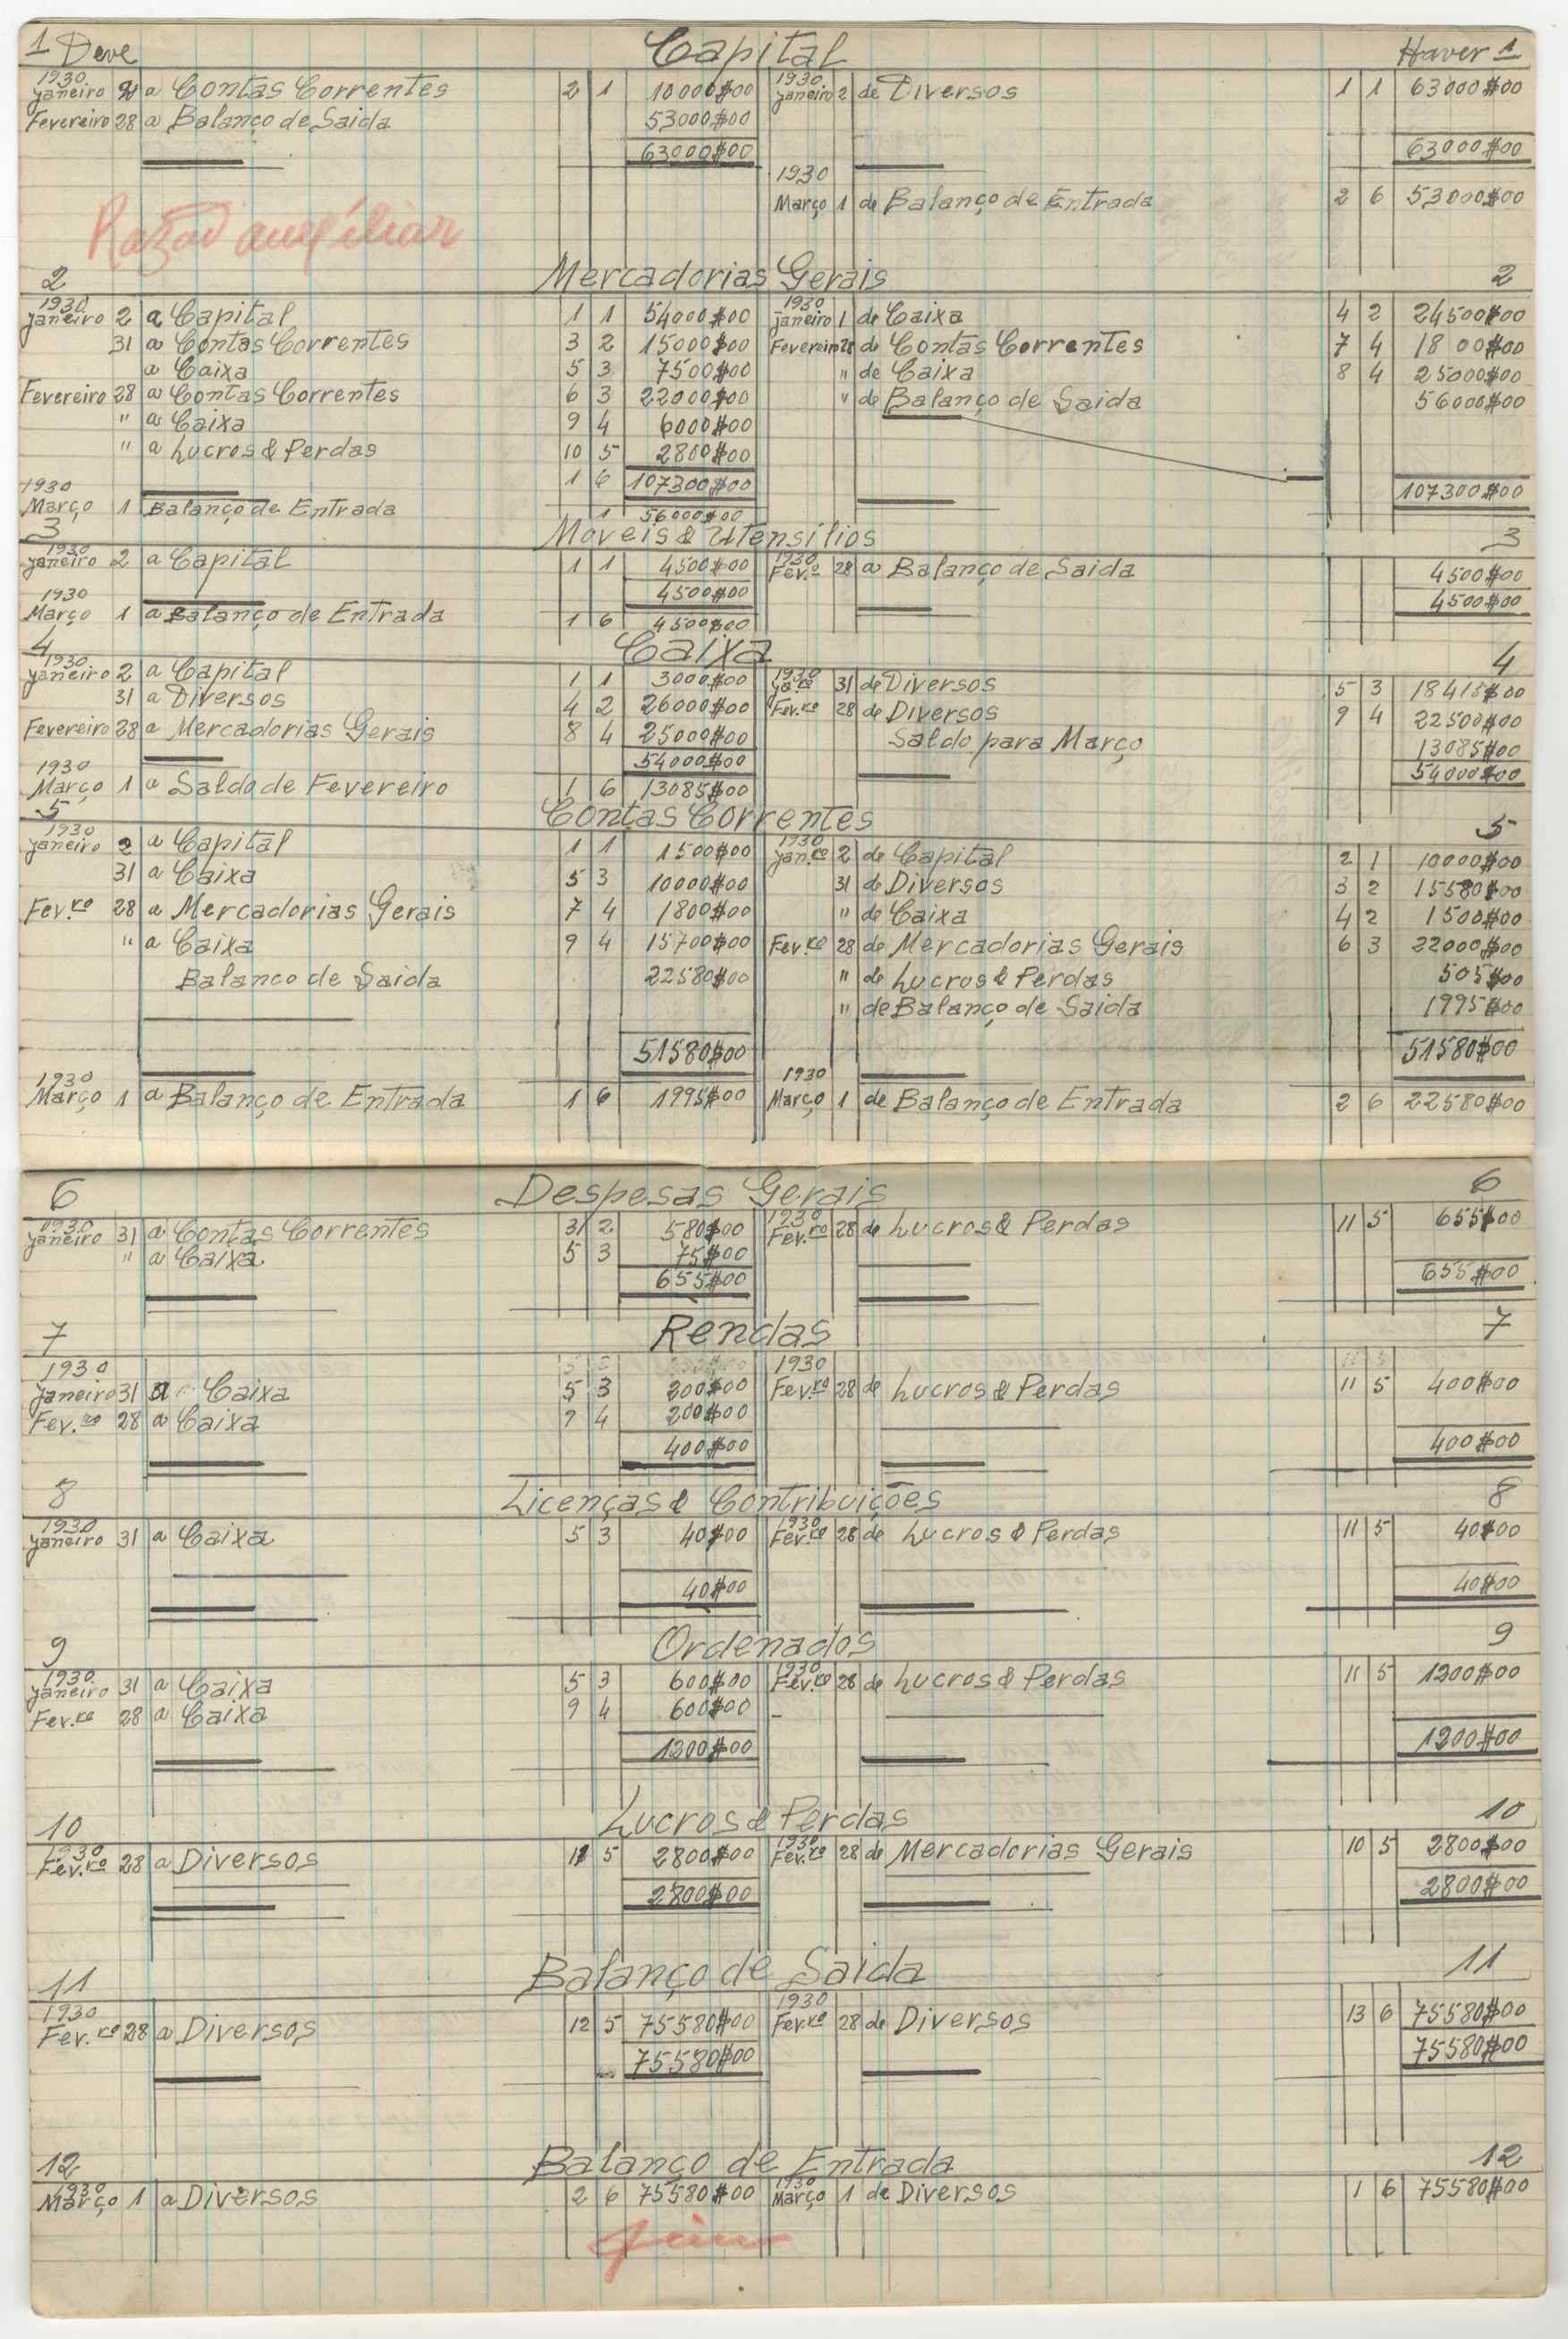 1 Deve Capital Haver 1
1930 1930
janeiro 2 a Contas Correntes 2 1 10000$00 janeiro 2 de Diversos 1 1 63000$00
Fevereiro 28 a Balanço de Saida 53000$00
63000$00 63000$00
1930
Março 1 de Balanço de Entrada 2 6 53000$00
Razaõ auxiliar
2 Mercadorias Gerais 2
1930 1930
janeiro 2 a Capital 1 1 54000$00 janeiro 1 de Caixa 4 2 24500$00
31 a Contas Correntes 3 2 15000$00 Fevereiro 28 de Contas Correntes 7 4 18 00$00
a Caixa 5 3 7500$00 " de Caixa 8 4 25000$00
Fevereiro 28 a Contas Correntes 6 3 22000$00 " de Balanço de Saida 56000$00
" a Caixa 9 4 6000$00
" a Lucros & Perdas 10 5 2800$00
1930 1 6 107300$00 107300$00
Março 1 Balanço de Entrada 1 56000$00
3 Moveis & Utensílios 3
1930 1930
janeiro 2 a Capital 1 1 4500$00 Fev.º 28 a Balanço de Saida 4500$00
1930 4500$00 4500$00
Março 1 a Balanço de Entrada 1 6 4500$00
4 Caixa 4
1930 1930
janeiro 2 a Capital 1 1 3000$00 ja.ro 31 de Diversos 5 3 18415$00
31 a Diversos 4 2 26000$00 Fev.ro 28 de Diversos 9 4 22500$00
Fevereiro 28 a Mercadorias Gerais 8 4 25000$00 Saldo para Março 13085$00
1930 54000$00 54000$00
Março 1 a Saldo de Fevereiro 1 6 13085$00
5 Contas Correntes 5
1930 1930
janeiro 2 a Capital 1 1 1500$00 jan.ro 2 de Capital 2 1 10000$00
31 a Caixa 5 3 10000$00 31 de Diversos 3 2 15580$00
Fev.ro 28 a Mercadorias Gerais 7 4 1800$00 " de Caixa 4 2 1500$00
" a Caixa 9 4 15700$00 Fev.ro 28 de Mercadorias Gerais 6 3 22000$00
Balanco de Saida 22580$00 " de Lucros & Perdas 505$00
" de Balanço de Saida 1995$00
51580$00 51580$00
1930 1930
Março 1 a Balanço de Entrada 1 6 1995$00 Março 1 de Balanço de Entrada 2 6 22580$00
6 Despesas Gerais 6
1930 1930
janeiro 31 a Contas Correntes 3 2 580$00 Fev.ro 28 de Lucros & Perdas 11 5 655$00
" a Caixa 5 3 75$00
655$00 655$00
7 Rendas 7
1930 1930
janeiro 31 a Caixa 5 3 200$00 Fev.ro 28 de Lucros & Perdas 11 5 400$00
Fev.ro 28 a Caixa 9 4 200$00
400$00 400$00
8 Licenças & Contribuições 8
1930 1930
janeiro 31 a Caixa 5 3 40$00 Fev.ro 28 de Lucros & Perdas 11 5 40$00
40$00 40$00
9 Ordenados 9
1930 1930
janeiro 31 a Caixa 5 3 600$00 Fev.ro 28 de Lucros & Perdas 11 5 1200$00
Fev.ro 28 a Caixa 9 4 600$00
1200$00 1200$00
10 Lucros & Perdas 10
1930 1930
Fev.ro 28 a Diversos 11 5 2800$00 Fev.ro 28 de Mercadorias Gerais 10 5 2800$00
2800$00 2800$00
11 Balanço de Saida 11
1930 1930
Fev.ro 28 a Diversos 12 5 75580$00 Fev.ro 28 de Diversos 13 6 75580$00
75580$00 75580$00
12 Balanço de Entrada 12
1930 1930
Março 1 a Diversos 2 6 75580$00 Março 1 de Diversos 1 6 75580$00